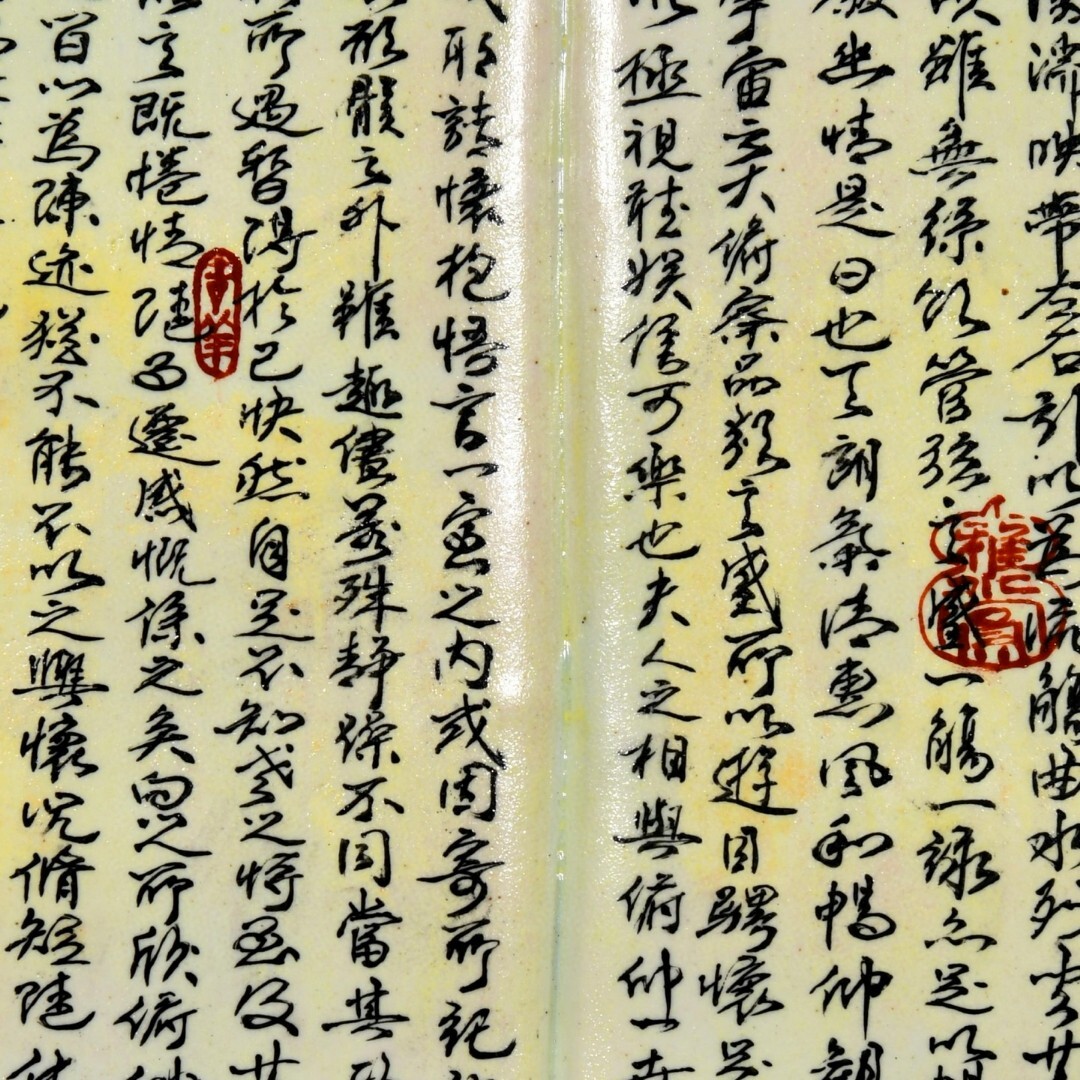 湍映帶左右引以爲流觴曲水列坐其
雖無絲竹管弦之盛一觴一詠亦足以暢
敘幽情是日也天朗氣清惠風和暢仰觀
宇宙之大俯察品類之盛所以遊目騁懷足
以極視聽娛信可樂也夫人之相與俯仰一世
取諸懷抱悟言一室之內或因寄所託
形骸之外雖趣萬殊靜躁不同當其欣
所遇暫得於己快然自足不知老之將至及其
之既惓情隨事遷感慨係之矣向之所欣俯仰
間以為陳迹猶不能不以之興懷況脩短隨化